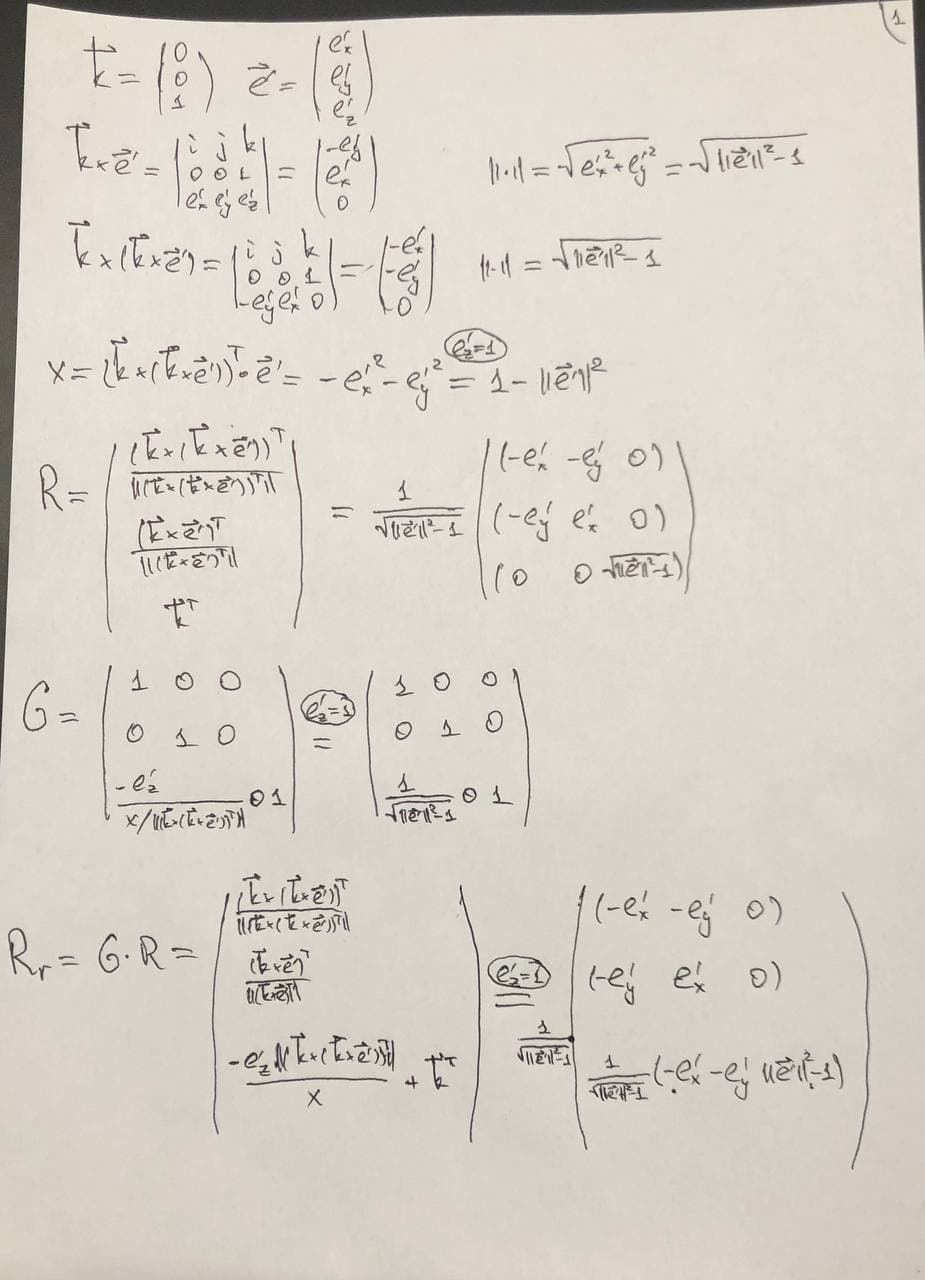 1
k⃗ = (0 0 1) e⃗' = (e'x e'y e'z)
k⃗ × e⃗' = |i j k; 0 0 1; e'x e'y e'z| = (-e'y e'x 0) ||·|| = √(e'x² + e'y²) = √(||e⃗'||² - 1)
k⃗ × (k⃗ × e⃗') = |i j k; 0 0 1; -e'y e'x 0| = (-e'x -e'y 0) ||·|| = √(||e⃗'||² - 1)
x = (k⃗ × (k⃗ × e⃗'))ᵀ · e⃗' = -e'x² - e'y² = (e'z = 1) 1 - ||e⃗'||²
R = ((k⃗ × (k⃗ × e⃗'))ᵀ / ||(k⃗ × (k⃗ × e⃗'))ᵀ||; (k⃗ × e⃗')ᵀ / ||(k⃗ × e⃗')ᵀ||; k⃗ᵀ) = 1/√(||e⃗'||² - 1) ((-e'x -e'y 0); (-e'y e'x 0); (0 0 √(||e⃗'||² - 1)))
G = (1 0 0; 0 1 0; -e'z / (x/||(k⃗ × (k⃗ × e⃗'))ᵀ||) 0 1) = (e'z = 1) (1 0 0; 0 1 0; 1/√(||e⃗'||² - 1) 0 1)
Rr = G · R = ((k⃗ × (k⃗ × e⃗'))ᵀ / ||(k⃗ × (k⃗ × e⃗'))ᵀ||; (k⃗ × e⃗')ᵀ / ||(k⃗ × e⃗')ᵀ||; -e'z ||k⃗ × (k⃗ × e⃗')ᵀ|| / x + k⃗ᵀ) = (e'z = 1) 1/√(||e⃗'||² - 1) · ((-e'x -e'y 0); (-e'y e'x 0); 1/√(||e⃗'||² - 1) (-e'x -e'y ||e⃗'||² - 1))